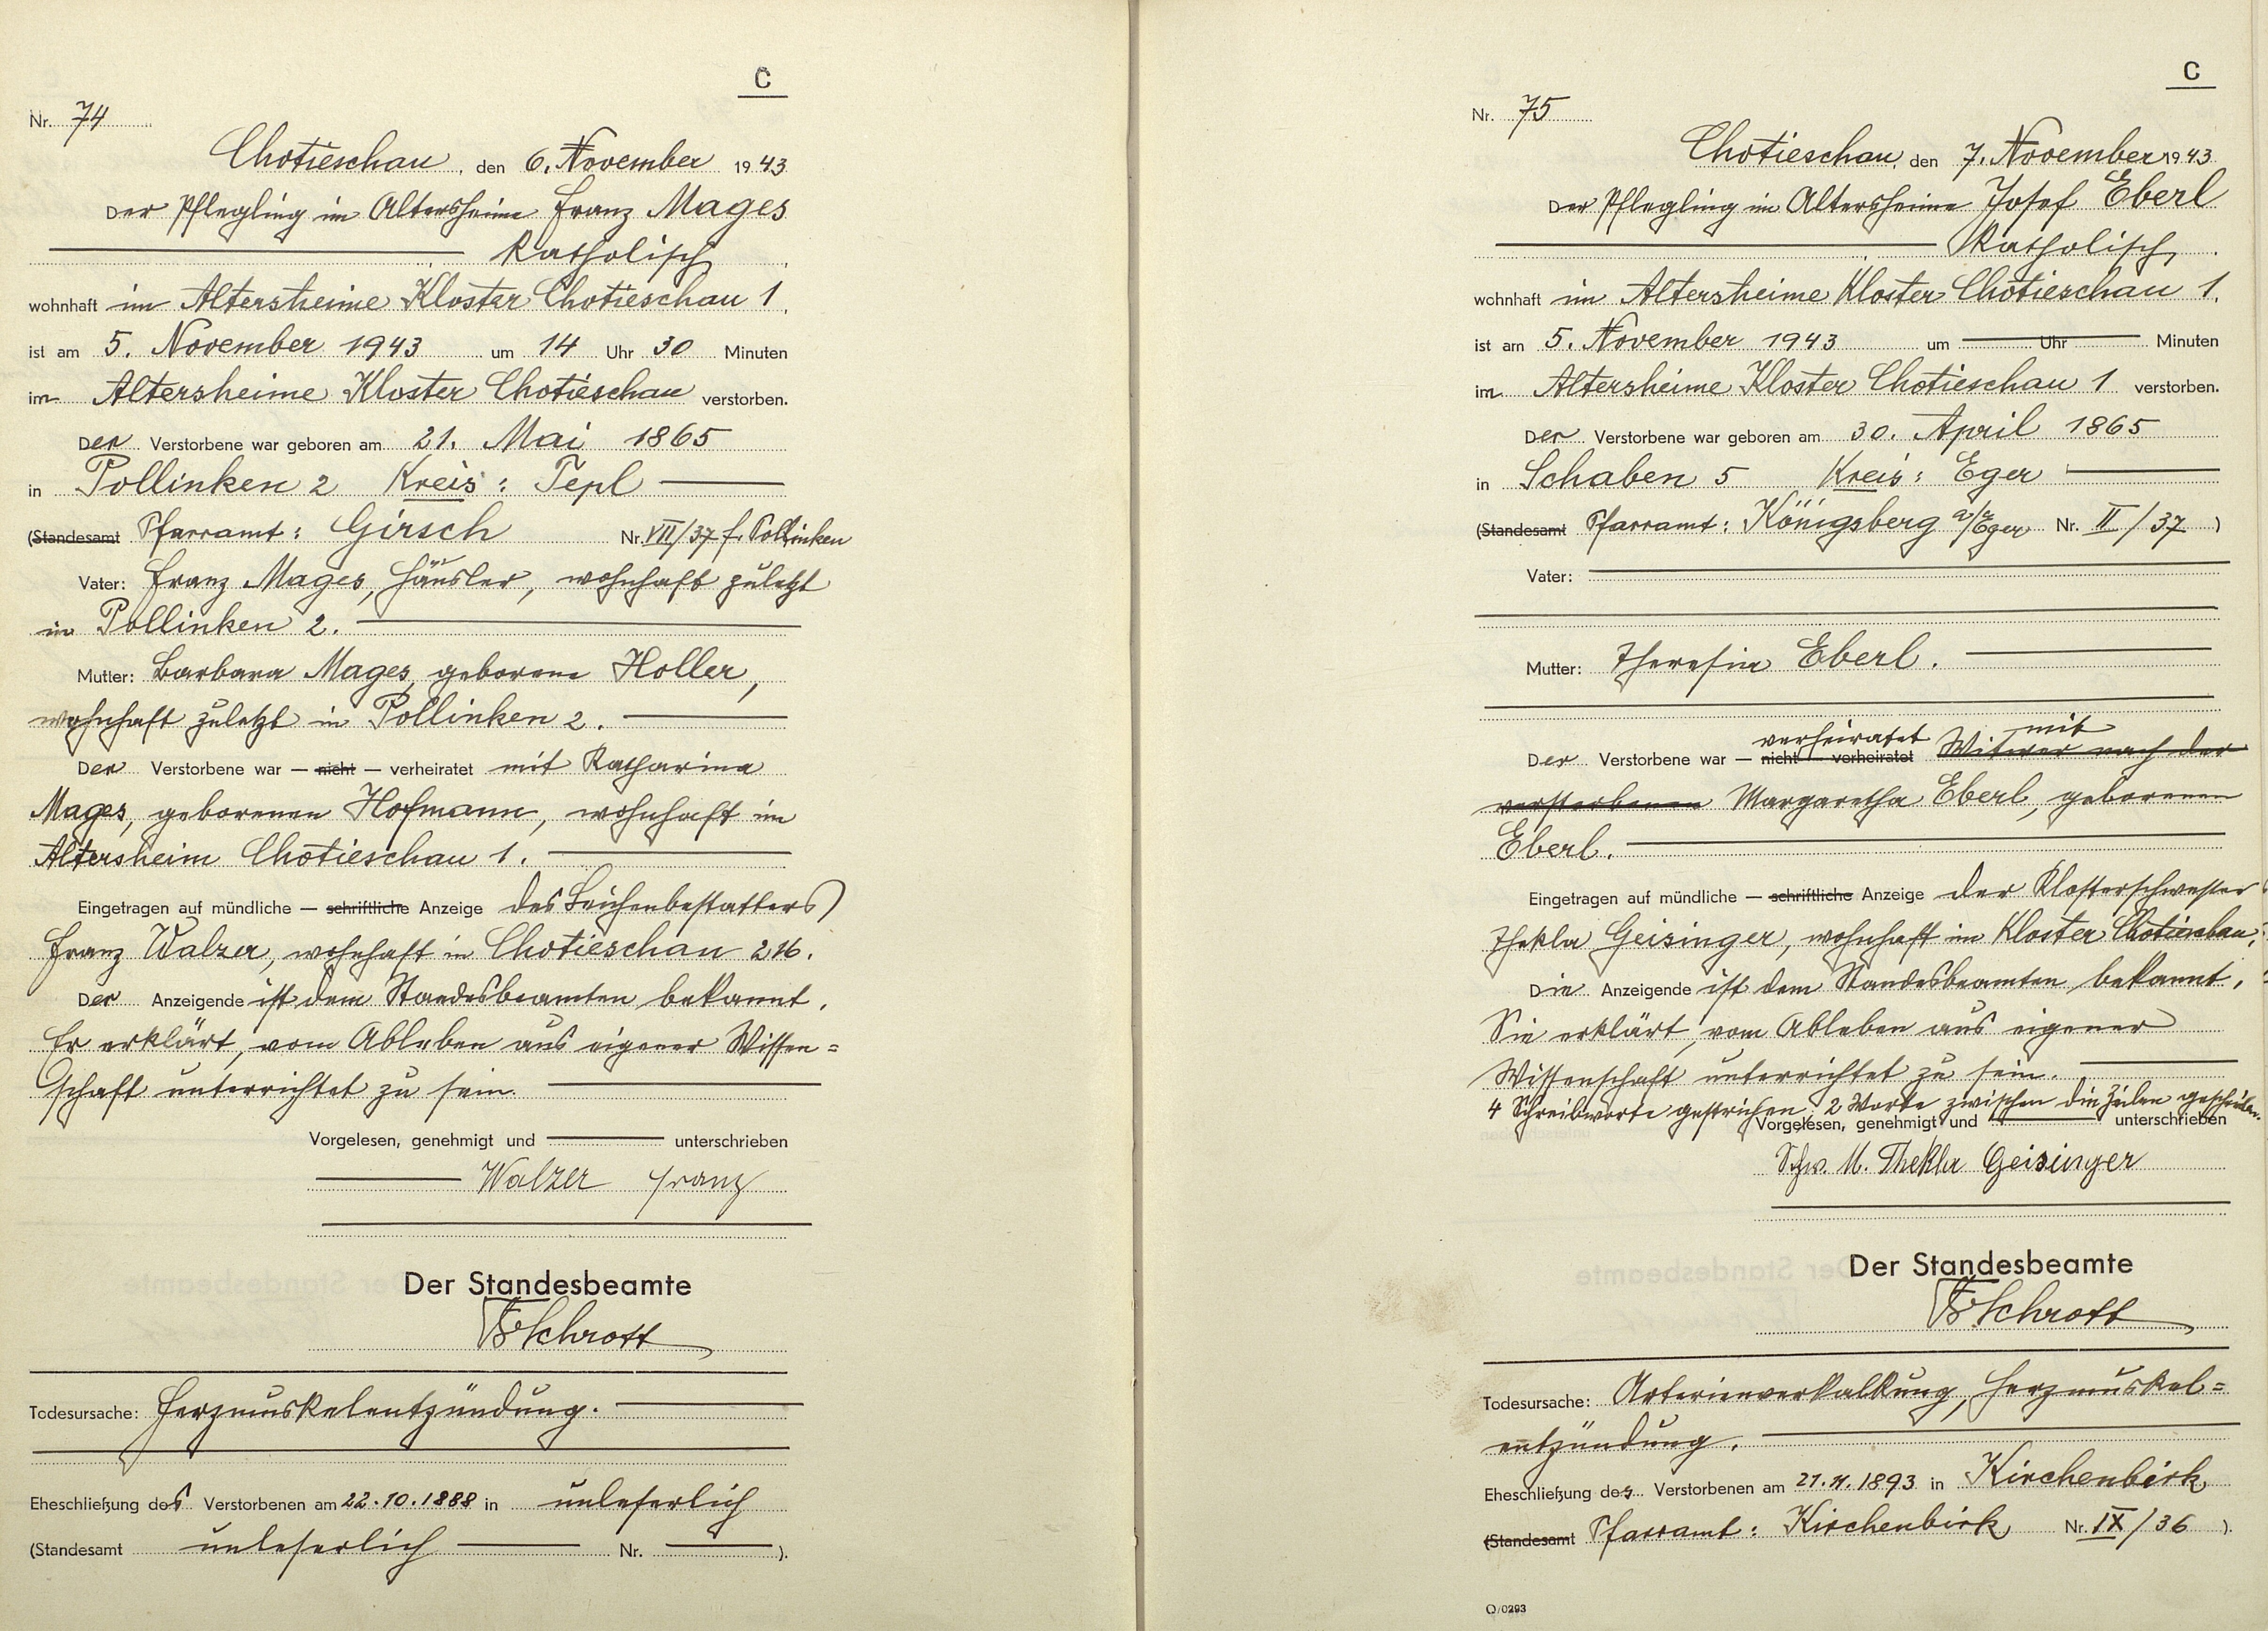 C
Nr. 74
Chotieschau, den 6. November 1943
Der Pflegling im Altersheime Franz Mages
Katholisch
wohnhaft im Altersheime Kloster Chotieschau 1.
ist am 5. November 1943 um 14 Uhr 30 Minuten
im Altersheime Kloster Chotieschau verstorben.
Der Verstorbene war geboren am 21. Mai 1865
in Pollinken 2 Kreis: Tepl
(Standesamt Pfarramt: Girsch Nr. VII/37 f. Pollinken
Vater: Franz Mages, Häusler, wohnhaft zuletzt
in Pollinken 2.
Mutter: Barbara Mages, geborene Holler,
wohnhaft zuletzt in Pollinken 2.
Der Verstorbene war — nicht — verheiratet mit Katharina
Mages, geborenen Hofmann, wohnhaft im
Altersheim Chotieschau 1.
Eingetragen auf mündliche — schriftliche Anzeige des Leichenbestatters
Franz Walzer, wohnhaft in Chotieschau 216.
Der Anzeigende ist dem Standesbeamten bekannt.
Er erklärt, vom Ableben aus eigener Wissen=
schaft unterrichtet zu sein.
Vorgelesen, genehmigt und unterschrieben
Walzer Franz
Der Standesbeamte
Schrott
Todesursache: Herzmuskelentzündung.
Eheschließung des Verstorbenen am 22.10.1888 in unleserlich
(Standesamt unleserlich Nr. ).
C
Nr. 75
Chotieschau, den 7. November 1943
Der Pflegling im Altersheime Josef Eberl
Katholisch
wohnhaft im Altersheime Kloster Chotieschau 1.
ist am 5. November 1943 um Uhr Minuten
im Altersheime Kloster Chotieschau 1 verstorben.
Der Verstorbene war geboren am 30. April 1865
in Schaben 5 Kreis: Eger
(Standesamt Pfarramt: Königsberg a/Eger Nr. II/37 )
Vater:
Mutter: Theresia Eberl.
verheiratet mit
Der Verstorbene war — nicht — verheiratet Witwer nach der
verstorbenen Margaretha Eberl, geborenen
Eberl.
Eingetragen auf mündliche — schriftliche Anzeige der Klosterschwester
Thekla Geisinger, wohnhaft im Kloster Chotieschau.
Die Anzeigende ist dem Standesbeamten bekannt.
Sie erklärt, vom Ableben aus eigener
Wissenschaft unterrichtet zu sein.
4 Schreibworte gestrichen, 2 Worte zwischen die Zeilen geschrieben.
Vorgelesen, genehmigt und unterschrieben
Schw. M. Thekla Geisinger
Der Standesbeamte
Schrott
Todesursache: Arterienverkalkung, Herzmuskel=
entzündung.
Eheschließung des Verstorbenen am 1893 in Kirchenbirk
(Standesamt Pfarramt: Kirchenbirk Nr. IX/36 ).
O/0293